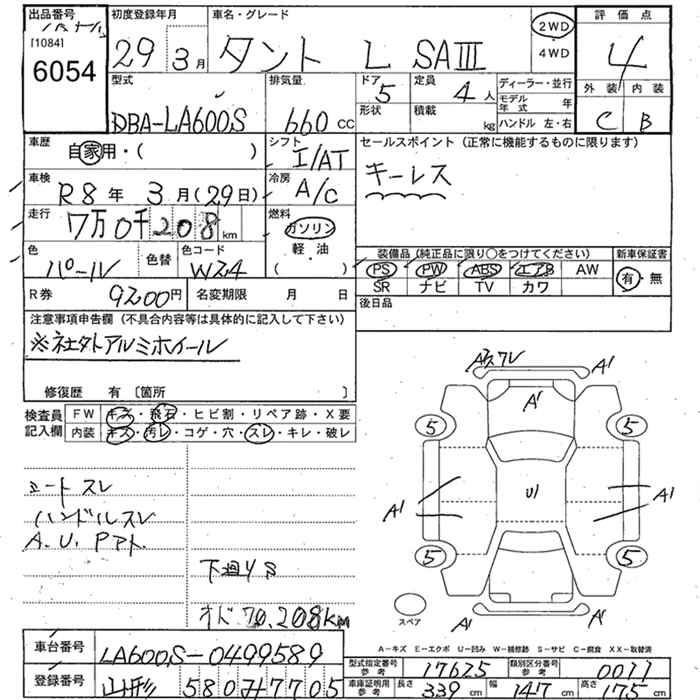 出品番号
[1084]
6054
初度登録年月
29年 3月
車名・グレード
タント L SAⅢ
2WD
4WD
評価点
4
外装 内装
C B
型式
DBA-LA600S
排気量
660 CC
ドア
5
形状
定員
4人
積載
kg
ディーラー・並行
モデル年式 年
ハンドル 左・右
車歴
自家用・( )
シフト
I/AT
セールスポイント (正常に機能するものに限ります)
キーレス
車検
R8年 3月(29日)
冷房
A/C
走行
7万0千208km
燃料
ガソリン
軽・油
( )
色
パール
色替
色コード
W24
装備品(純正品に限り○をつけてください)
新車保証書
PS PW ABS エアB AW
有・無
SR ナビ TV カワ
R券
9200円
名変期限 月 日
後日品
注意事項申告欄 (不具合内容等は具体的に記入して下さい)
※社外アルミホイール
修復歴 有 〔箇所 〕
検査員記入欄
FW キズ・飛石・ヒビ割・リペア跡・X要
内装 キズ・汚レ・コゲ・穴・スレ・キレ・破レ
シート スレ
ハンドルスレ
A.U.
下廻りS
オド70,208km
Aスレ A1
A1
5 5
A1 U1 A1
5 5
スペア
A1 A1
A-キズ E-エクボ U-凹み W-補修跡 S-サビ C-腐食 XX-取替済
車台番号
LA600S-0499589
登録番号
山形 580 7705
型式指定番号 参考
17625
類別区分番号 参考
0011
車庫証明用 参考
長さ 339cm 幅 147cm 高さ 175cm